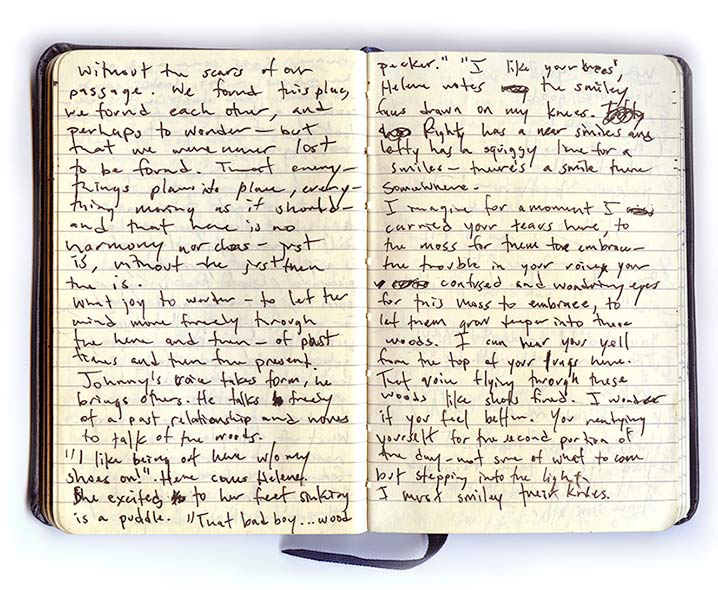 without the scars of our
passage. We found this place,
we found each other, and
perhaps to wonder — but
that we were never lost
to be found. That every-
thing plays its place, every-
thing moving as it should —
and that here is no
harmony nor chaos — just
is, without the just then
the is.
What joy to wander — to let the
mind move freely through
the here and then — of past
times and then the present.
Johnny's voice takes form, he
brings others. He talks freely
of a past relationship and moves
to talk of the woods.
"I like being out here w/o my
shoes on!". Here comes Helene.
She excited to her feet sinking
is a puddle. "That bad boy... wood
pecker." "I like your knees",
Helene notes the smiley
faces drawn on my knees.
Righty has a near smiles and
lefty has a squiggy line for a
smiles — there's a smile there
somewhere.
I imagine for a moment I
carried your tears here, to
the moss for them to embrace —
the trouble in your voice, your
confused and wondering eyes
for this moss to embrace, to
let them grow deeper into these
woods. I can hear your yell
from the top of your lungs here.
That voice flying through these
woods like shots fired. I wonder
if you feel better. You readying
yourself for the second portion of
the day — not sure of what to come
but stepping into the light.
I must smiley their knees.